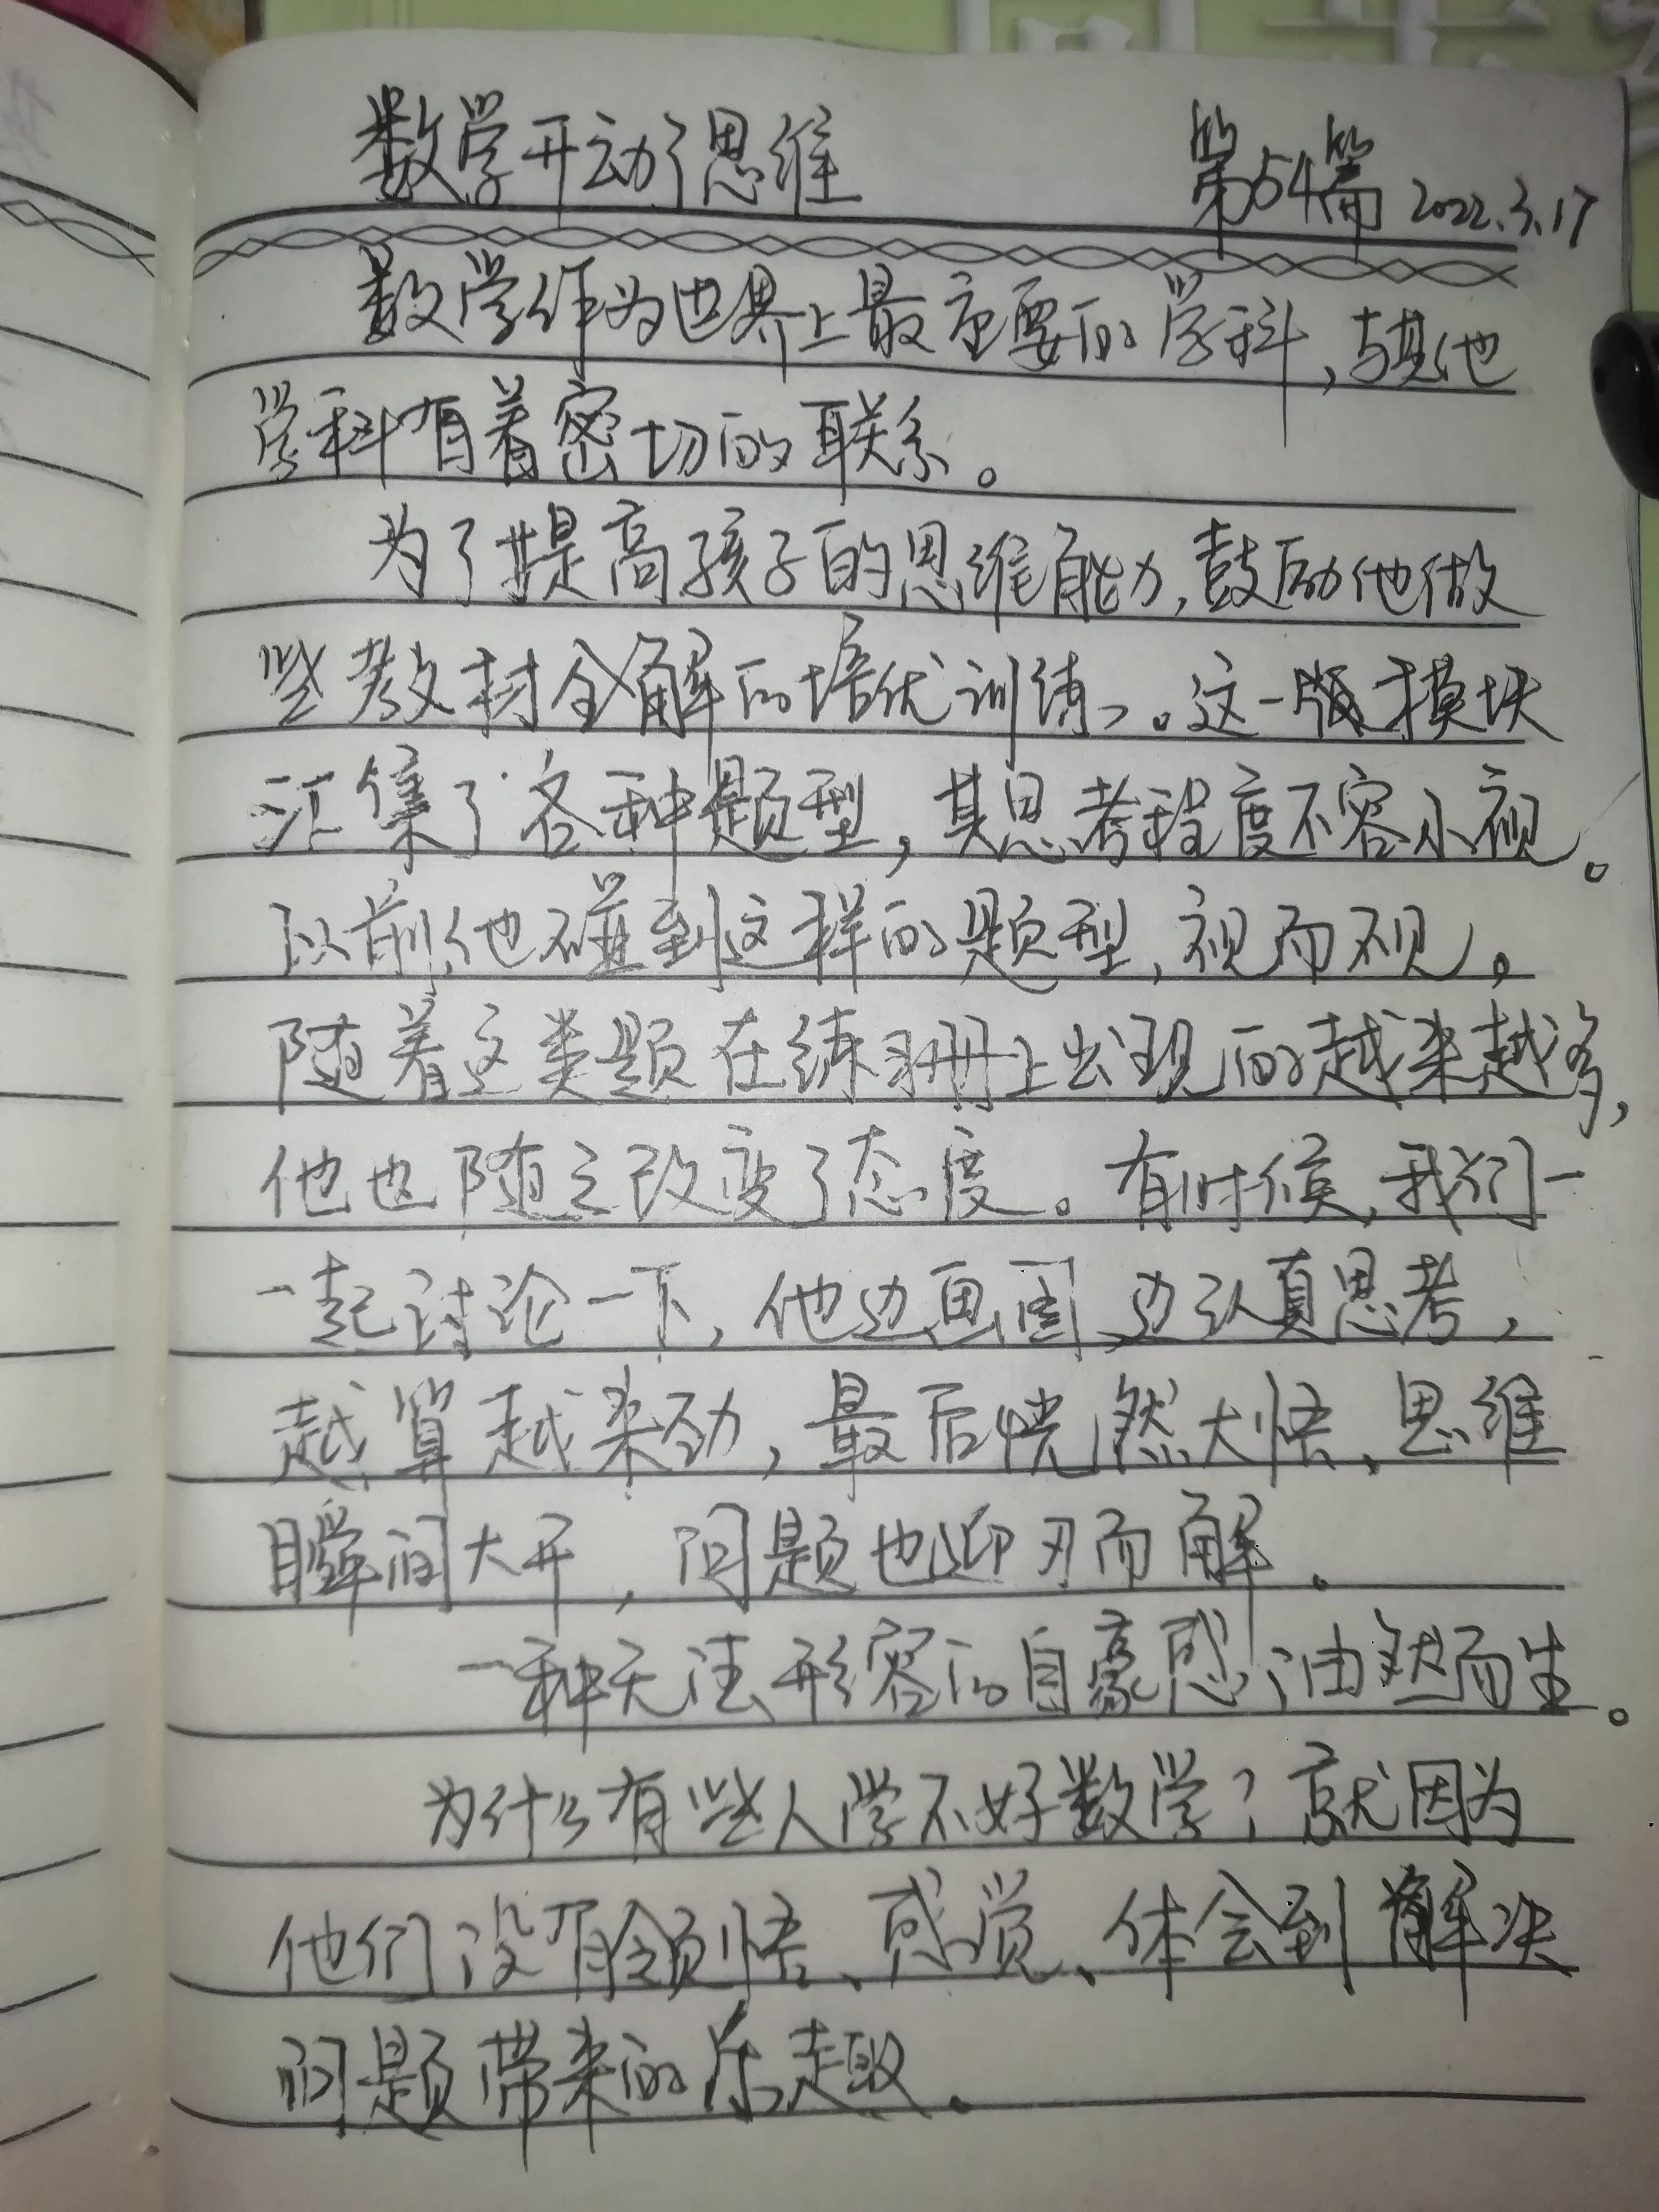 数学开动了思维 第54篇 2022.3.17
数学作为世界上最重要的学科，与其他
学科有着密切的联系。
为了提高孩子的思维能力，鼓励他做
些教材全解的培优训练。这一版模块
汇集了各种题型，其思考程度不容小视。
以前，他碰到这样的题型，视而不见。
随着这类题在练习册上出现的越来越多，
他也随之改变了态度。有时候，我们一
一起讨论一下，他边画图、边认真思考，
越算越来劲，最后恍然大悟、思维
瞬间大开，问题也迎刃而解。
一种无法形容的自豪感油然而生。
为什么有些人学不好数学？就因为
他们没有领悟、感觉、体会到解决
问题带来的乐趣。